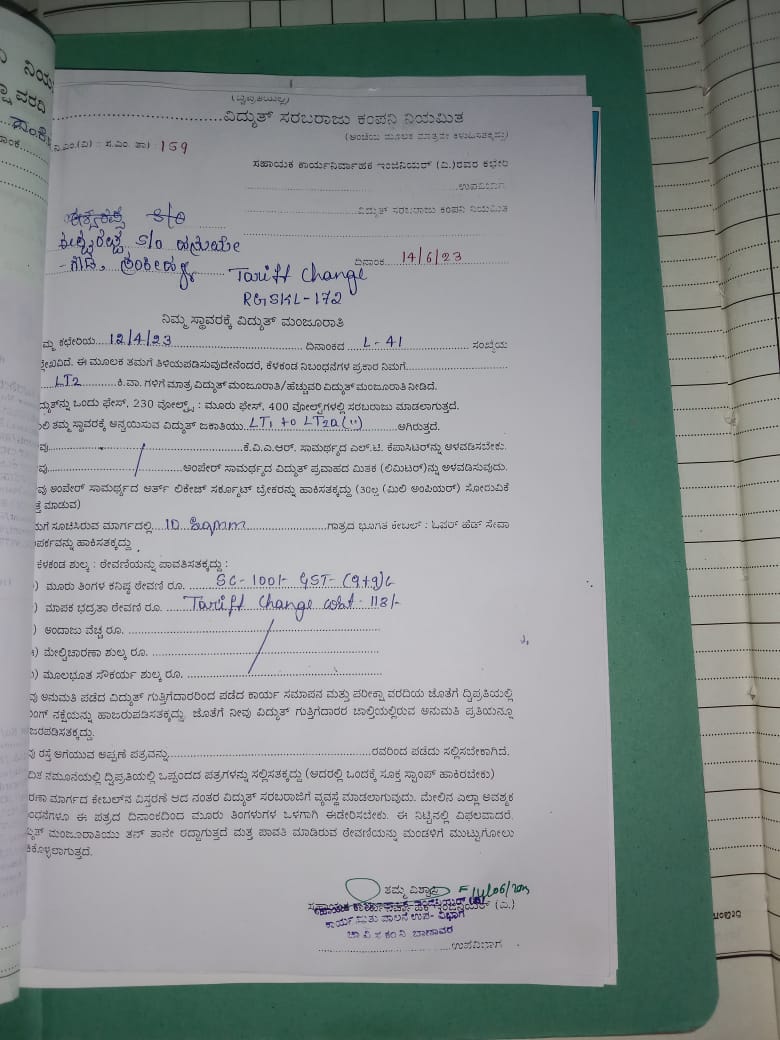 ನಿ ನಿಯ
ವರದಿ
(ದ್ವಿಪ್ರತಿಯಲ್ಲಿ)
ವಿದ್ಯುತ್ ಸರಬರಾಜು ಕಂಪನಿ ನಿಯಮಿತ
(ಅಂಚೆಯ ಮೂಲಕ ಮಾತ್ರವೇ ಕಳುಹಿಸತಕ್ಕದ್ದು)
ನಿ.ಎಂ.(ವಿ) : ಸ.ಎಂ. ಶಾ) 159
ಸಹಾಯಕ ಕಾರ್ಯನಿರ್ವಾಹಕ ಇಂಜಿನಿಯರ್ (ವಿ.)ರವರ ಕಛೇರಿ
ಉಪವಿಭಾಗ
ವಿದ್ಯುತ್ ಸರಬರಾಜು ಕಂಪನಿ ನಿಯಮಿತ
S/o
S/o
ದಿನಾಂಕ 14/6/23
Tariff change
RGSKL-172
ನಿಮ್ಮ ಸ್ಥಾವರಕ್ಕೆ ವಿದ್ಯುತ್ ಮಂಜೂರಾತಿ
ಮ್ಮ ಕಛೇರಿಯ 12/4/23 ದಿನಾಂಕದ L-41 ಸಂಖ್ಯೆಯ
ಲ್ಲೇಖವಿದೆ. ಈ ಮೂಲಕ ತಮಗೆ ತಿಳಿಯಪಡಿಸುವುದೇನೆಂದರೆ, ಕೆಳಕಂಡ ನಿಬಂಧನೆಗಳ ಪ್ರಕಾರ ನಿಮಗೆ
LT2 ಕಿ.ವಾ. ಗಳಿಗೆ ಮಾತ್ರ ವಿದ್ಯುತ್ ಮಂಜೂರಾತಿ/ಹೆಚ್ಚುವರಿ ವಿದ್ಯುತ್ ಮಂಜೂರಾತಿ ನೀಡಿದೆ.
ದ್ಯುತ್‌ನ್ನು ಒಂದು ಫೇಸ್, 230 ವೋಲ್ಟ್ಸ್ : ಮೂರು ಫೇಸ್, 400 ವೋಲ್ಟ್‌ಗಳಲ್ಲಿ ಸರಬರಾಜು ಮಾಡಲಾಗುತ್ತದೆ.
ಲಿ ತಮ್ಮ ಸ್ಥಾವರಕ್ಕೆ ಅನ್ವಯಿಸುವ ವಿದ್ಯುತ್ ಜಕಾತಿಯು LT1 to LT2a(ii) ಆಗಿರುತ್ತದೆ.
ವು ಕೆ.ವಿ.ಎ.ಆರ್. ಸಾಮರ್ಥ್ಯದ ಎಲ್.ಟಿ. ಕೆಪಾಸಿಟರ್‌ನ್ನು ಅಳವಡಿಸಬೇಕು.
ವು ಅಂಪೇರ್ ಸಾಮರ್ಥ್ಯದ ವಿದ್ಯುತ್ ಪ್ರವಾಹದ ಮಿತಕ (ಲಿಮಿಟರ್)ನ್ನು ಅಳವಡಿಸುವುದು.
ವು ಅಂಪೇರ್ ಸಾಮರ್ಥ್ಯದ ಅರ್ತ್ ಲಿಕೇಜ್ ಸರ್ಕ್ಯೂಟ್ ಬ್ರೇಕರನ್ನು ಹಾಕಿಸತಕ್ಕದ್ದು (30ಲ್ಲ (ಮಿಲಿ ಅಂಪಿಯರ್) ಸೋರುವಿಕೆ
ತ್ತೆ ಮಾಡುವ)
ಮಗೆ ಸೂಚಿಸಿರುವ ಮಾರ್ಗದಲ್ಲಿ 10 Sqmm ಗಾತ್ರದ ಭೂಗತ ಕೇಬಲ್ : ಓವರ್ ಹೆಡ್ ಸೇವಾ
ಪರ್ಕವನ್ನು ಹಾಕಿಸತಕ್ಕದ್ದು
ಕೆಳಕಂಡ ಶುಲ್ಕ : ಠೇವಣಿಯನ್ನು ಪಾವತಿಸತಕ್ಕದ್ದು :
) ಮೂರು ತಿಂಗಳ ಕನಿಷ್ಠ ಠೇವಣಿ ರೂ. SC-100/- GST-(9+9)
) ಮಾಪಕ ಭದ್ರತಾ ಠೇವಣಿ ರೂ. Tariff change cost-118/-
) ಅಂದಾಜು ವೆಚ್ಚ ರೂ.
) ಮೇಲ್ವಿಚಾರಣಾ ಶುಲ್ಕ ರೂ.
) ಮೂಲಭೂತ ಸೌಕರ್ಯ ಶುಲ್ಕ ರೂ.
ವು ಅನುಮತಿ ಪಡೆದ ವಿದ್ಯುತ್ ಗುತ್ತಿಗೆದಾರರಿಂದ ಪಡೆದ ಕಾರ್ಯ ಸಮಾಪನ ಮತ್ತು ಪರೀಕ್ಷಾ ವರದಿಯ ಜೊತೆಗೆ ದ್ವಿಪ್ರತಿಯಲ್ಲಿ
ರಿಂಗ್ ನಕ್ಷೆಯನ್ನು ಹಾಜರುಪಡಿಸತಕ್ಕದ್ದು. ಜೊತೆಗೆ ನೀವು ವಿದ್ಯುತ್ ಗುತ್ತಿಗೆದಾರರ ಚಾಲ್ತಿಯಲ್ಲಿರುವ ಅನುಮತಿ ಪ್ರತಿಯನ್ನೂ
ಜರಪಡಿಸತಕ್ಕದ್ದು.
ವು ರಸ್ತೆ ಅಗೆಯುವ ಅಪ್ಪಣೆ ಪತ್ರವನ್ನು ರವರಿಂದ ಪಡೆದು ಸಲ್ಲಿಸಬೇಕಾಗಿದೆ.
ದಿತ ನಮೂನೆಯಲ್ಲಿ ದ್ವಿಪ್ರತಿಯಲ್ಲಿ ಒಪ್ಪಂದದ ಪತ್ರಗಳನ್ನು ಸಲ್ಲಿಸತಕ್ಕದ್ದು (ಅದರಲ್ಲಿ ಒಂದಕ್ಕೆ ಸೂಕ್ತ ಸ್ಟಾಂಪ್ ಹಾಕಿರಬೇಕು)
ರಣಾ ಮಾರ್ಗದ ಕೇಬಲ್‌ನ ವಿಸ್ತರಣೆ ಆದ ನಂತರ ವಿದ್ಯುತ್ ಸರಬರಾಜಿಗೆ ವ್ಯವಸ್ಥೆ ಮಾಡಲಾಗುವುದು. ಮೇಲಿನ ಎಲ್ಲಾ ಅವಶ್ಯಕ
ಬಂಧನೆಗಳೂ ಈ ಪತ್ರದ ದಿನಾಂಕದಿಂದ ಮೂರು ತಿಂಗಳುಗಳ ಒಳಗಾಗಿ ಈಡೇರಿಸಬೇಕು. ಈ ನಿಟ್ಟಿನಲ್ಲಿ ವಿಫಲವಾದರೆ.
ದ್ಯುತ್ ಮಂಜೂರಾತಿಯು ತನ್ ತಾನೇ ರದ್ದಾಗುತ್ತದೆ ಮತ್ತ ಪಾವತಿ ಮಾಡಿರುವ ಠೇವಣಿಯನ್ನು ಮಂಡಳಿಗೆ ಮುಟ್ಟುಗೋಲು
ಕಿಕೊಳ್ಳಲಾಗುತ್ತದೆ.
ತಮ್ಮ ವಿಶ್ವಾಸಿ
ಸಹಾಯಕ ಕಾರ್ಯನಿರ್ವಾಹಕ ಇಂಜಿನಿಯರ್ (ವಿ.)
ಕಾರ್ಯ ಮತ್ತು ಪಾಲನೆ ಉಪ-ವಿಭಾಗ
ಚಾ.ವಿ.ಸ.ಕಂ.ನಿ. ಬಾಣಾವರ
ಉಪವಿಭಾಗ